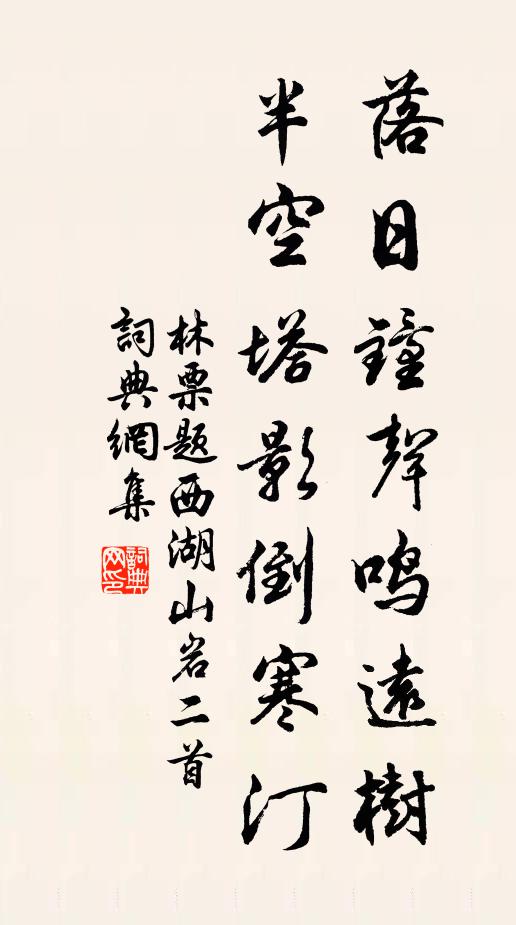 落日鐘聲鳴遠樹
半空塔影倒寒汀
林栗题西湖山岩二首
詞典網集
詞典網印